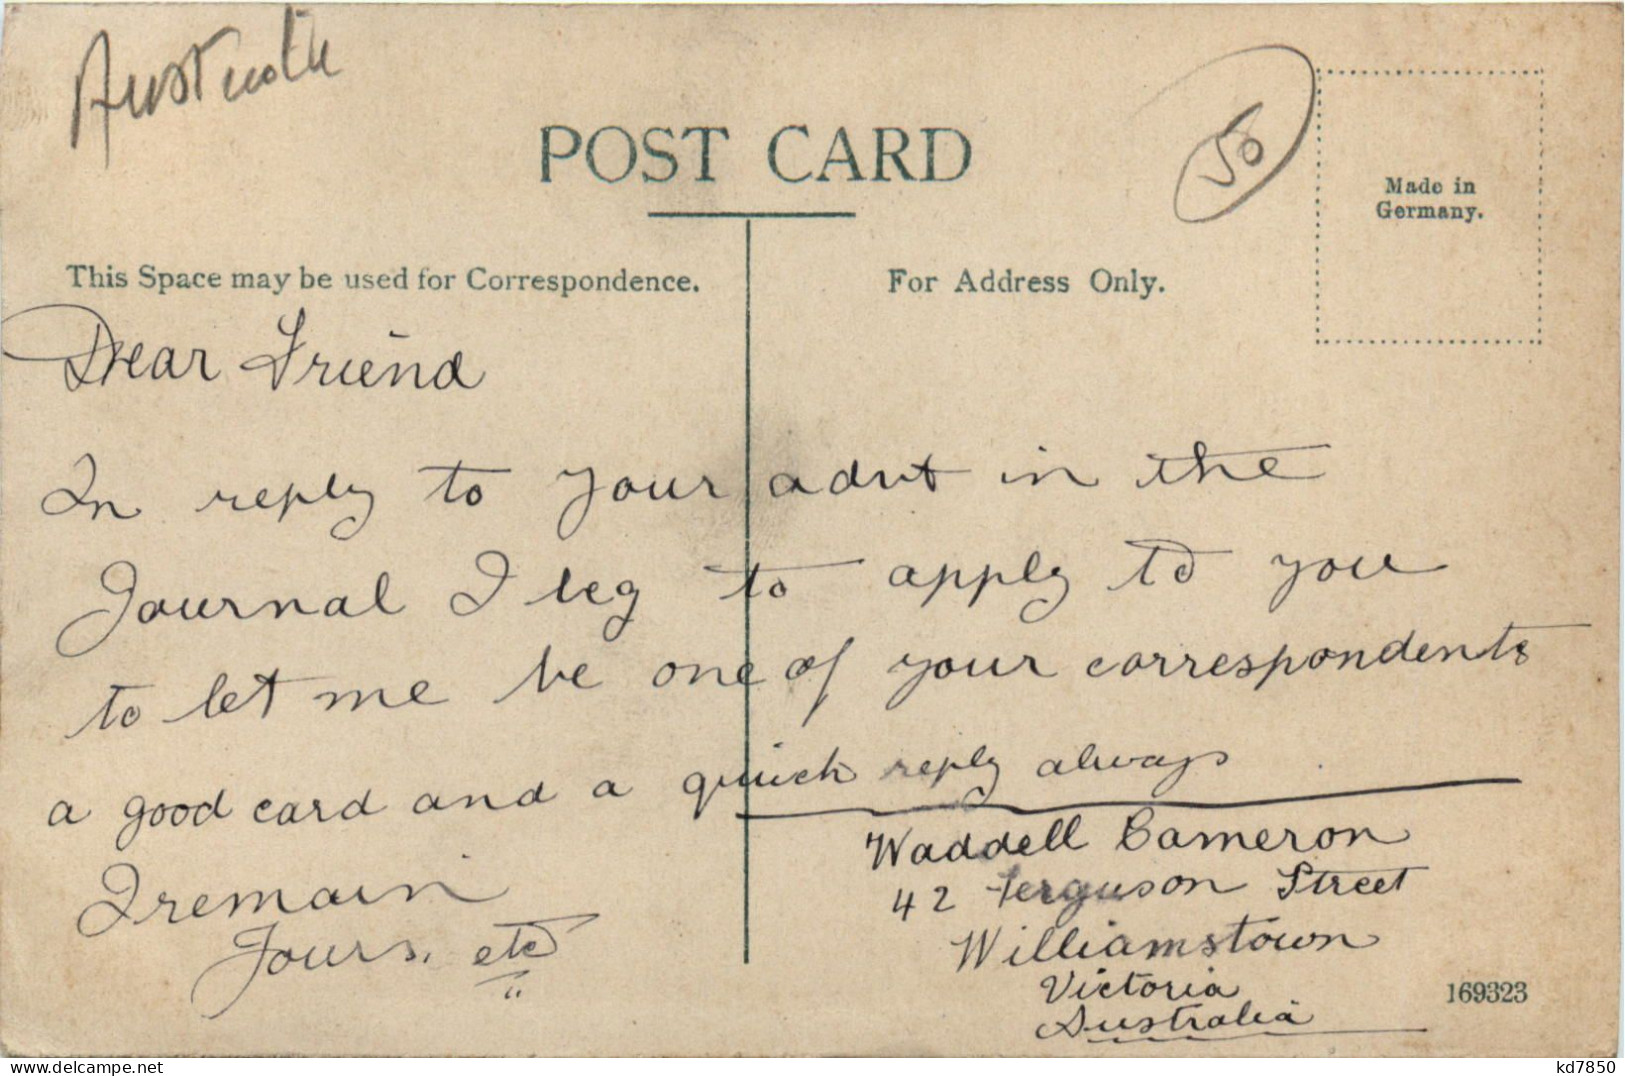 POST CARD
50
Made in
Germany.
This Space may be used for Correspondence.
For Address Only.
Dear Friend
In reply to your advt in the
Journal I beg to apply to you
to let me be one of your correspondents
a good card and a quick reply always
I remain
Yours. etc
Waddell Cameron
42 Ferguson Street
Williamstown
Victoria
Australia
169323
www.delcampe.net
kd7850